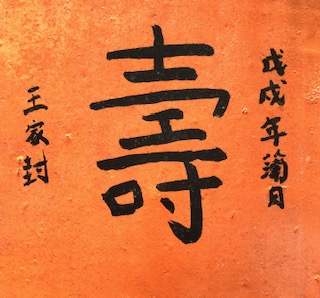 戊戌年蒲日
壽
王家封